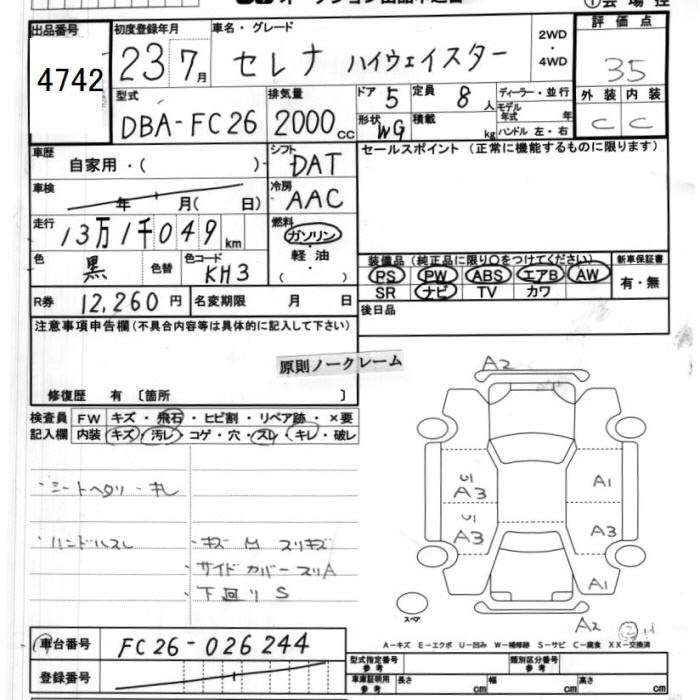 ① 会場控
出品番号 初度登録年月 車名・グレード 2WD・4WD 評価点
4742 23 7月 セレナ ハイウェイスター 35
型式 排気量 ドア 5 定員 8人 ディーラー・並行 外装 内装
DBA-FC26 2000cc 形状 WG 積載 kg モデル年式 年 ハンドル 左・右 C C
車歴 自家用・( ) シフト DAT セールスポイント (正常に機能するものに限ります)
車検 年 月( 日) 冷房 AAC
走行 13万1千049km 燃料 ガソリン・軽油・( )
色 黒 色替 色コード KH3 装備品 (純正品に限り○をつけてください) 新車保証書
PS PW ABS エアB AW 有・無
R券 12,260円 名変期限 月 日 SR ナビ TV カワ
注意事項申告欄(不具合内容等は具体的に記入して下さい) 後日品
原則ノークレーム
修復歴 有 〔箇所 〕
検査員 FW キズ・飛石・ヒビ割・リペア跡・×要
記入欄 内装 キズ・汚レ・コゲ・穴・スレ・キレ・破レ
A2
・シートヘタリ・キレ U1 A3 A1
・ハンドルスレ ・キズ M スリキズ U1 A3 A3
・サイドカバースリA A1
・下回り S
スペア A2
A-キズ E-エクボ U-凹み W-補修跡 S-サビ C-腐食 XX-交換済
車台番号 FC26-026244
型式指定番号 参考 類別区分番号 参考
登録番号 車庫証明用 参考 長さ cm 幅 cm 高さ cm